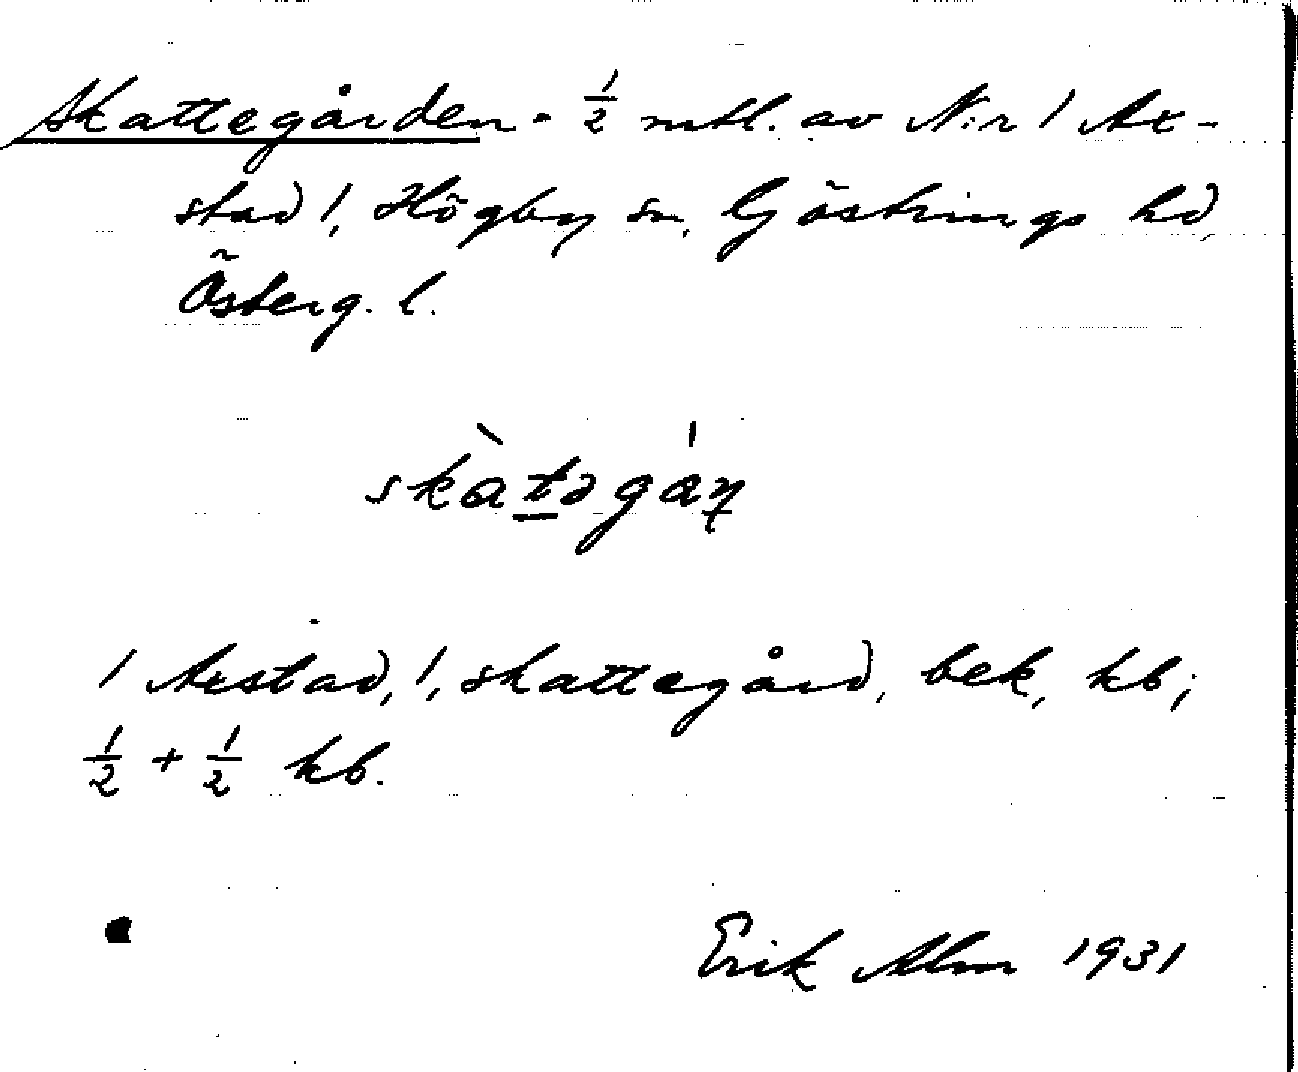 Skattegården - ½ mtl. av N:r 1 Ax-
stad 1, Högby sn, Göstrings hd,
Österg. l.
skàtəgán
1 Axstad, 1, skattegård, bek, kb;
½ + ½ kb.
Erik Alm 1931